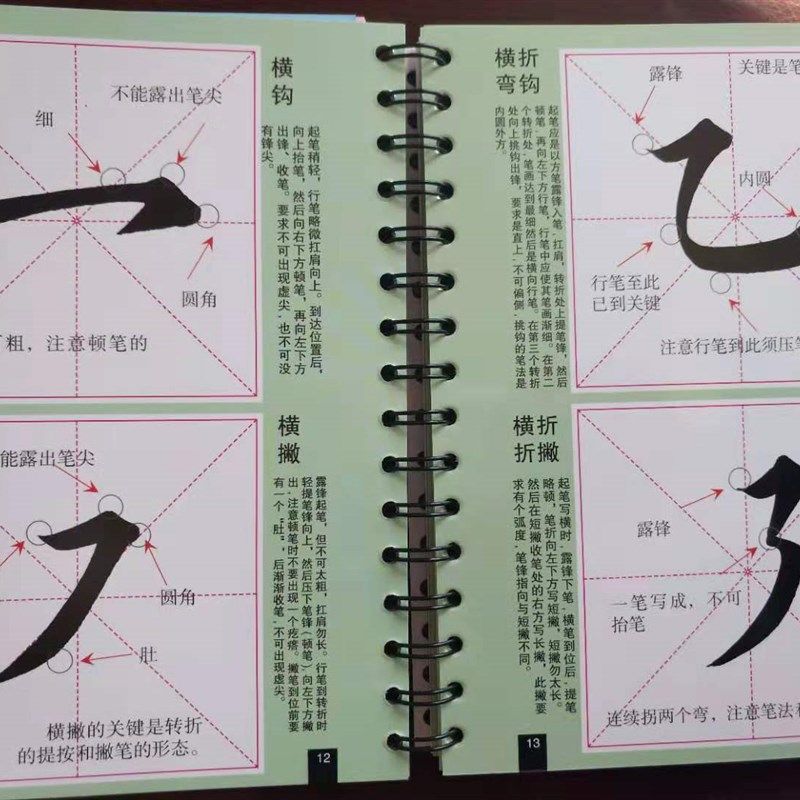 横
钩
起笔稍轻，行笔略微扛肩向上。到达位置后，
向上抬笔，然后向右下方顿笔，再向左下方
出锋、收笔。要求不可出现虚尖，也不可没
有锋尖。
细
不能露出笔尖
圆角
粗，注意顿笔的
横
撇
露锋起笔，但不可太粗，扛肩勿长。行笔到转折时
轻提笔锋向上，然后压下笔锋（顿笔）向左下方撇
出，注意顿笔时不要出现一个疙瘩。撇笔到位前要
有一个“肚”，后渐渐收笔，不可出现虚尖。
能露出笔尖
圆角
肚
横撇的关键是转折
的提按和撇笔的形态。
12
横折
弯钩
起笔应是以方笔露锋入笔，扛肩，转折处上提笔锋，然后
顿笔，再向左下方行笔，行笔中应使其笔画渐细。在第二
个转折处，笔画达到最细然后是横向行笔。在第三个转折
处向上挑钩出锋，要求是直上，不可偏侧，挑钩的笔法是
内圆外方。
露锋
关键是笔
内圆
行笔至此
已到关键
注意行笔到此须压笔
横折
折撇
起笔写横时，露锋下笔，横笔到位后，提笔
略顿，笔折向左下方写短撇，短撇勿太长。
然后在短撇收笔处的右方写长撇，此撇要
求有个弧度，笔锋指向与短撇不同。
露锋
一笔写成，不可
抬笔
连续拐两个弯，注意笔法
13